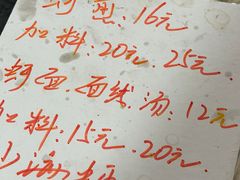 16元
加料:20元.25元
面.面线.汤:12元
加料:15元.20元.